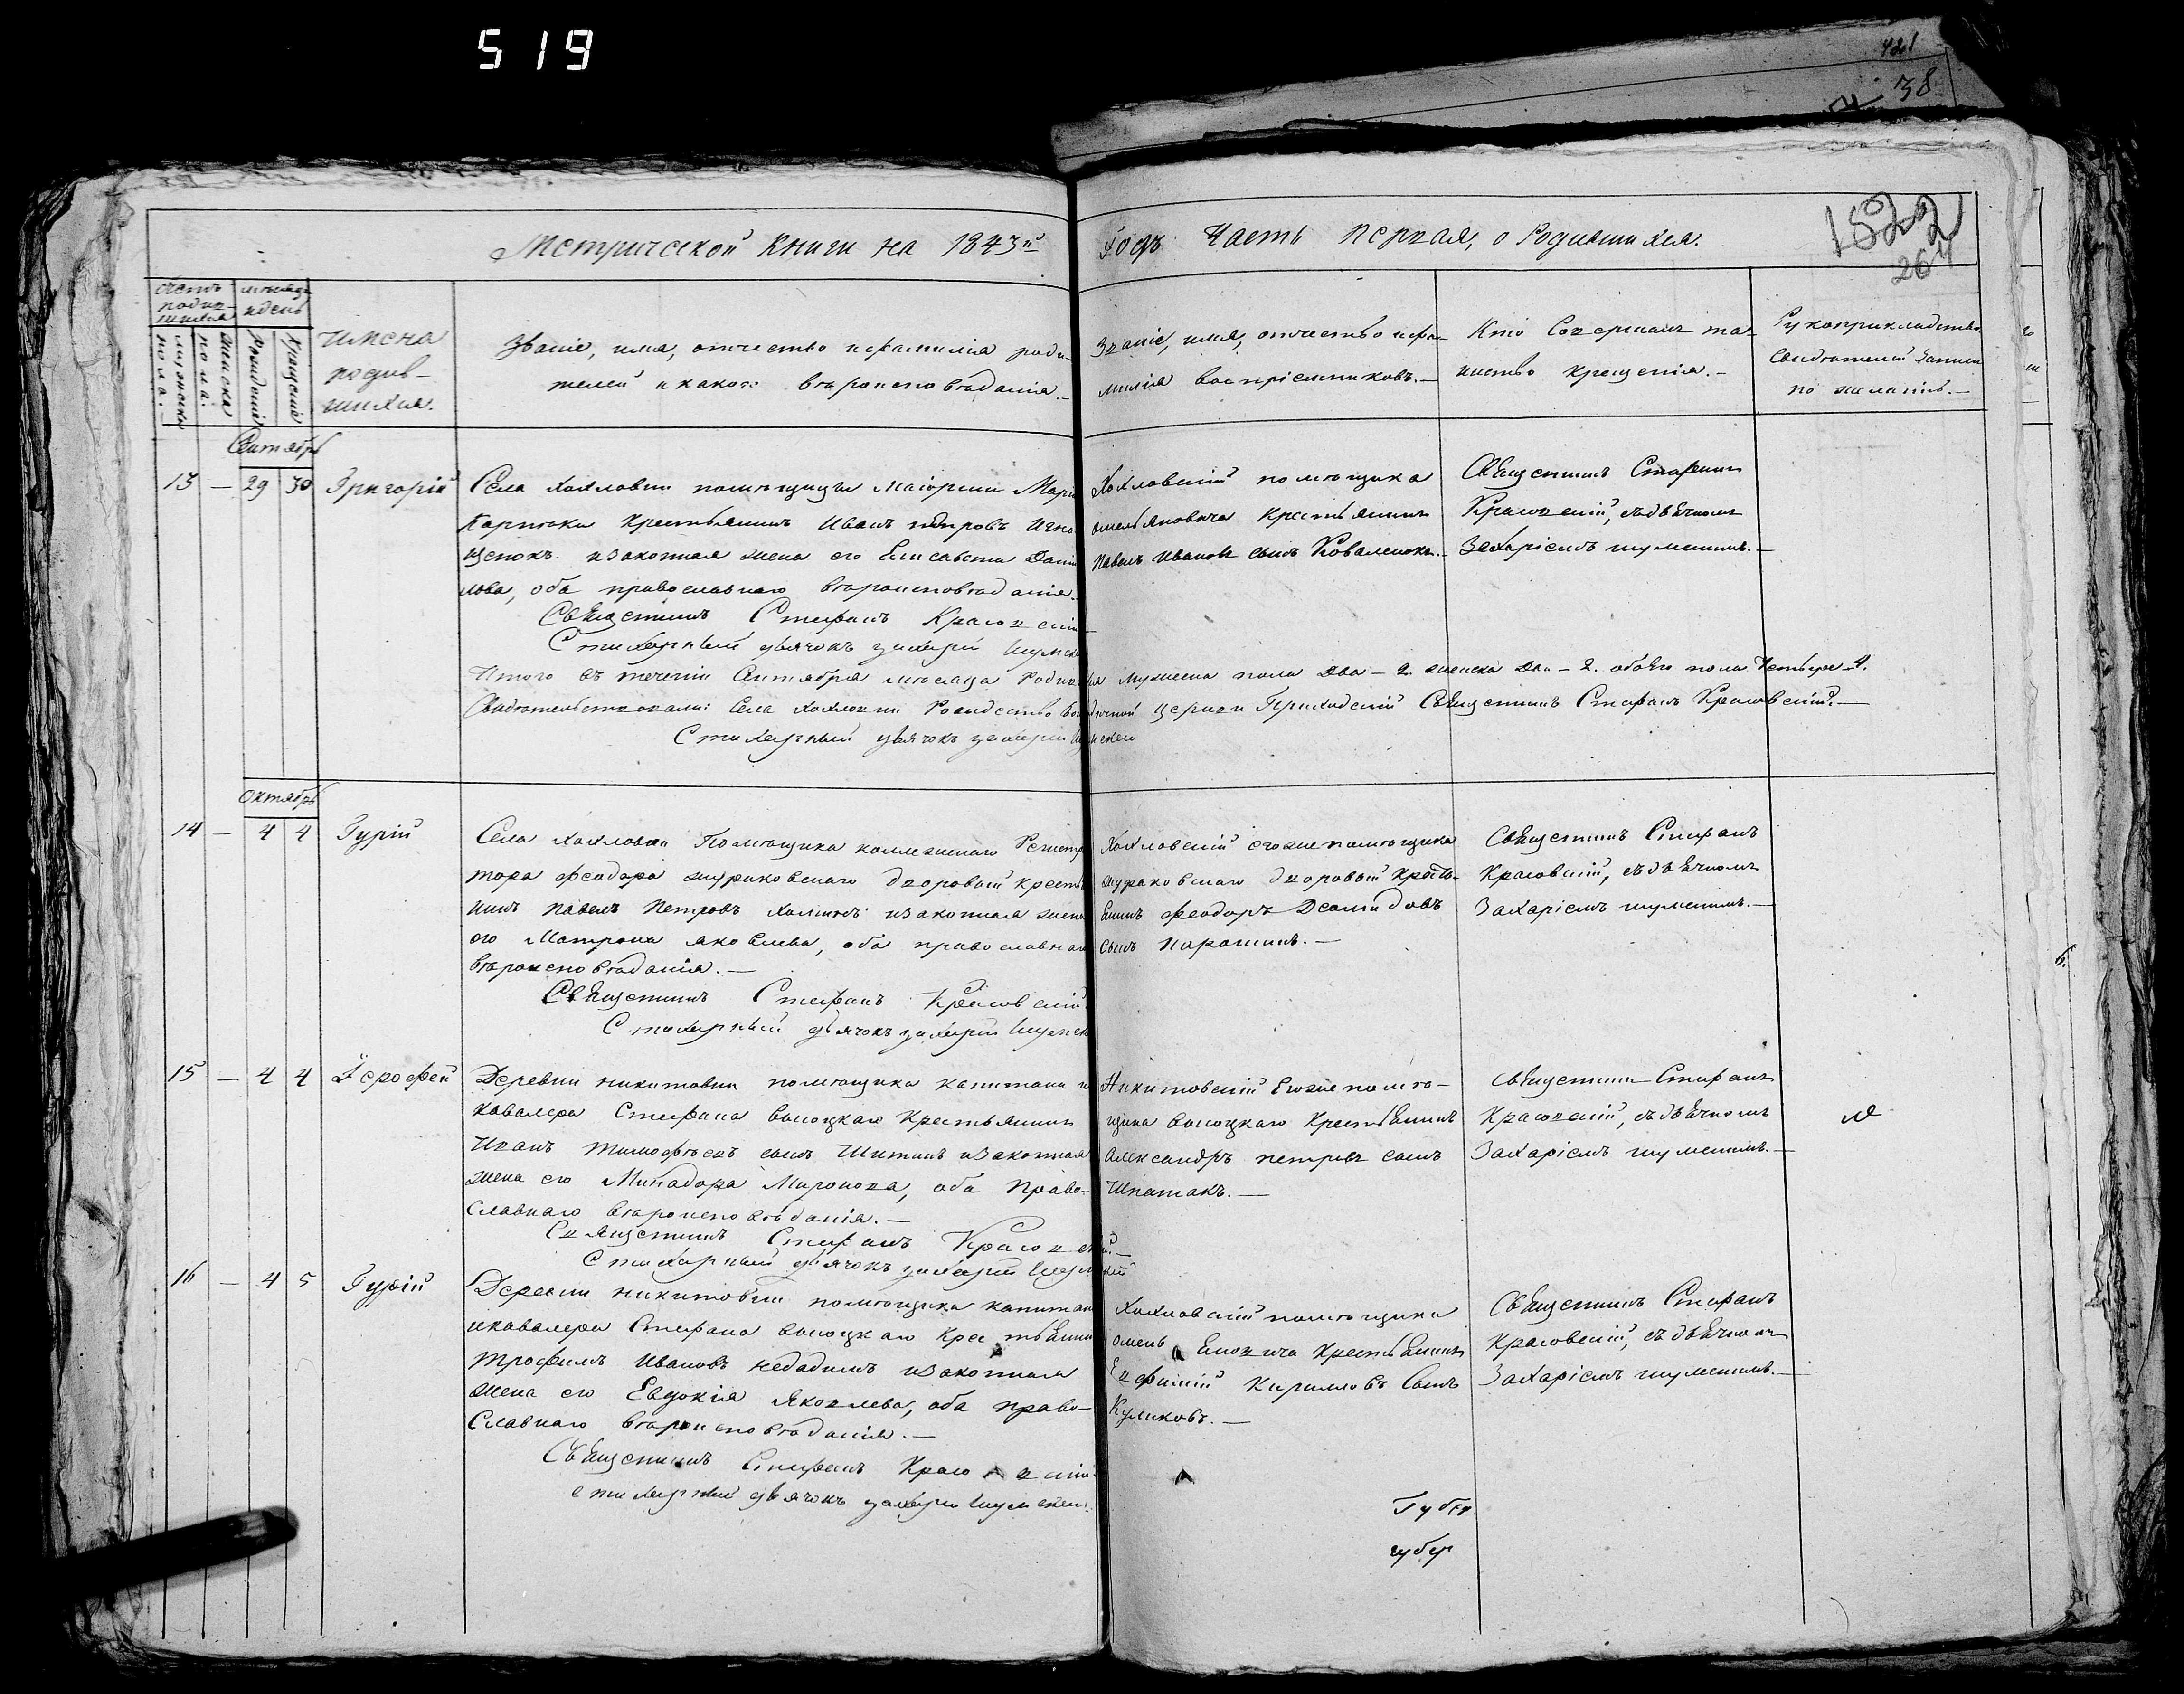 519
421
38
1822
264
Метрической Книги на 1843й Годъ Часть первая, о Родившихся.
Счетъ родив-шихся
мужеска пола.
женска пола.
Месяцъ и день
Рожденія
Крещенія
Имена родив-шихся.
Званіе, имя, отчество и фамилія роди-
телей и какого вѣроисповѣданія.
Званіе, имя, отчество и фа-
милія воспріемниковъ.
Кто совершалъ та-
инство крещенія.
Рукоприкладство
свидѣтелей записи
по желанію.
Сентябрь
13 — 29 30 Григорій
Села Хохловки помѣщицы Маіорши Маріи
крестьянинъ Иванъ Петровъ
и законная жена его Елисавета Дани
лова, оба православнаго вѣроисповѣданія.
Священникъ Стефанъ Красовскій
Стихарный дьячокъ Захарій Шумскій
Хохловскій помѣщика
Омельяновича крестьянинъ
Павелъ Ивановъ сынъ Коваленокъ.
Священникъ Стефанъ
Красовскій, съ дьячкомъ
Захаріемъ Шумскимъ.
Итого въ теченіи Сентября мѣсяца Родился мужеска пола два — 2. женска два — 2. обоего пола четыре — 4.
Свидѣтельствовали: Села Хохловки Рождество Богородичной церкви Приходскій Священникъ Стефанъ Красовскій.
Стихарный дьячокъ Захарій Шумскій
Октябрь
14 — 4 4 Гурій
Села Хохловки Помѣщика коллежскаго Регистра
тора Феодора Жураковскаго дворовый крестья
нинъ Павелъ Петровъ и законная жена
его Матрона Яковлева, оба православнаго
вѣроисповѣданія.
Священникъ Стефанъ Красовскій
Стихарный дьячокъ Захарій Шумскій
Хохловскій его же помѣщика
Жураковскаго дворовый крестья-
нинъ Феодоръ Демидовъ
сынъ Парашинъ.
Священникъ Стефанъ
Красовскій, съ дьячкомъ
Захаріемъ Шумскимъ.
15 — 4 4 Іерофей
Деревни Никитовки помѣщика капитана и
кавалера Стефана Высоцкаго крестьянинъ
Иванъ Тимофѣевъ сынъ Шитикъ и законная
жена его Минадора Миронова, оба право-
славнаго вѣроисповѣданія.
Священникъ Стефанъ Красовскій.
Стихарный дьячокъ Захарій Шумскій
Никитовскій его же помѣ-
щика Высоцкаго крестьянинъ
Александръ Петровъ сынъ
Шпатакъ.
Священникъ Стефанъ
Красовскій, съ дьячкомъ
Захаріемъ Шумскимъ.
16 — 4 5 Гурій
Деревни Никитовки помѣщика капитана
и кавалера Стефана Высоцкаго крестьянинъ
Трофимъ Ивановъ и законная
жена его Евдокія Яковлева, оба право-
славнаго вѣроисповѣданія.
Священникъ Стефанъ Красовскій
стихарный дьячокъ Захарій Шумскій.
Хохловскій помѣщика
Омельяновича крестьянинъ
Евфимій Кирилловъ сынъ
Куликовъ.
Священникъ Стефанъ
Красовскій, съ дьячкомъ
Захаріемъ Шумскимъ.
Губер
губер